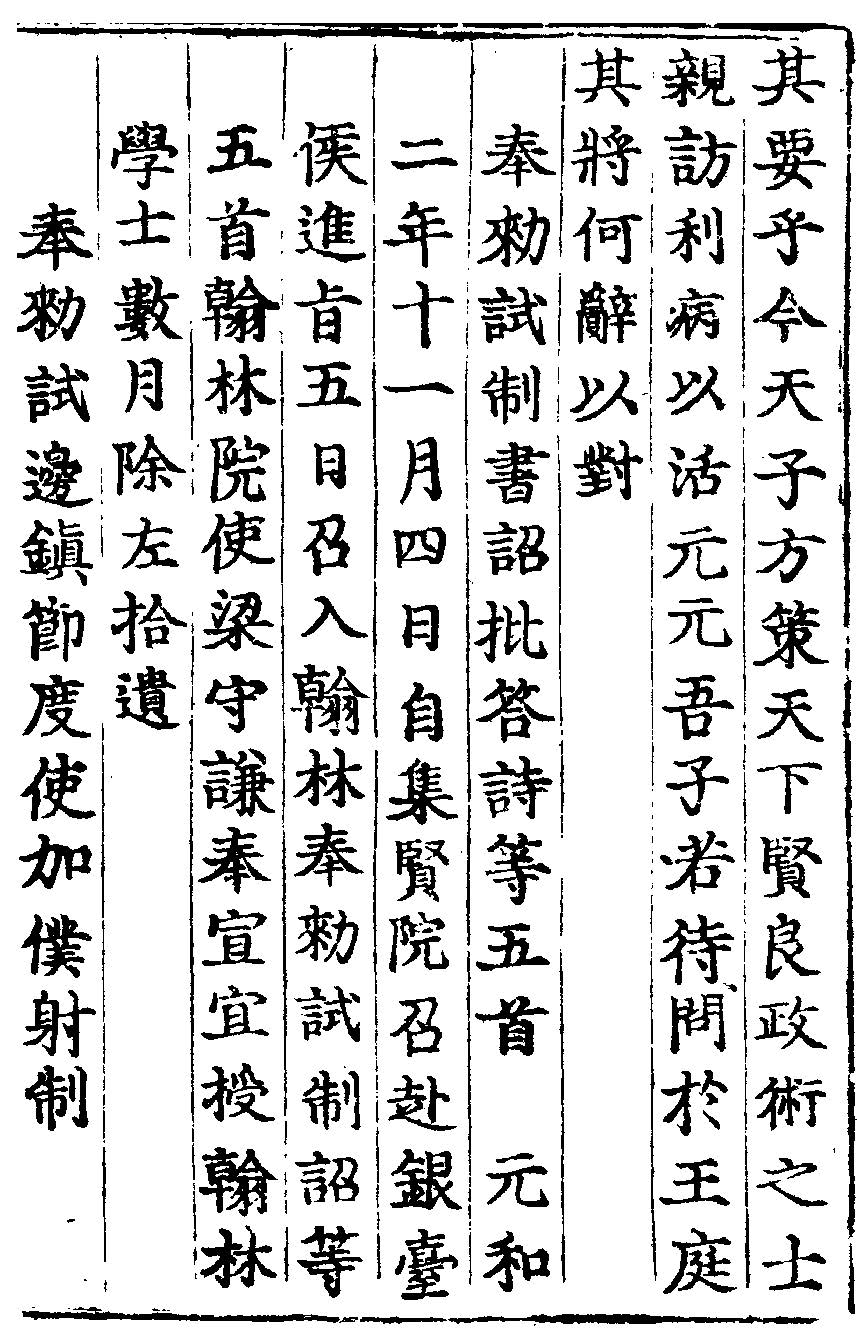 其要乎今天子方策天下賢良政術之士
親訪利病以活元元吾子若待問於王庭
其將何辭以對
奉勑試制書詔批答詩等五首　元和
二年十一月四日自集賢院召赴銀臺
𠊱進旨五日召入翰林奉勑試制詔等
五首翰林院使梁守謙奉宣宜授翰林
學士數月除左拾遺
奉勑試邊鎮節度使加僕射制